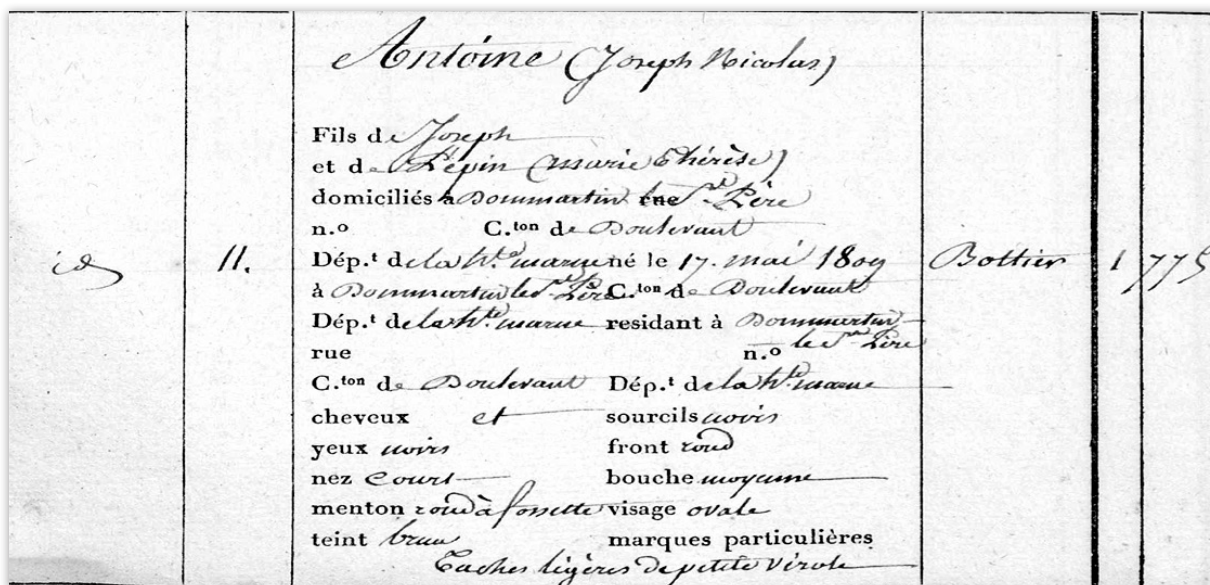 Antoine (Joseph Nicolas)
Fils de Joseph
et de Pépin (marie thérèse)
domiciliés à Dommartin rue le St. Père
n.º C.ton de Doulevant
id 11. Dép.t de la hte. marne né le 17. mai 1809 Bottier 1 775
à Dommartin le St. Père C.ton de Doulevant
Dép.t de la hte. marne residant à Dommartin
le St. Père
rue n.º
C.ton de Doulevant Dép.t de la hte. marne
cheveux et sourcils noirs
yeux noirs front rond
nez Court bouche moyenne
menton rond à fossette visage ovale
teint brun marques particulières
Taches légères de petite Vérole